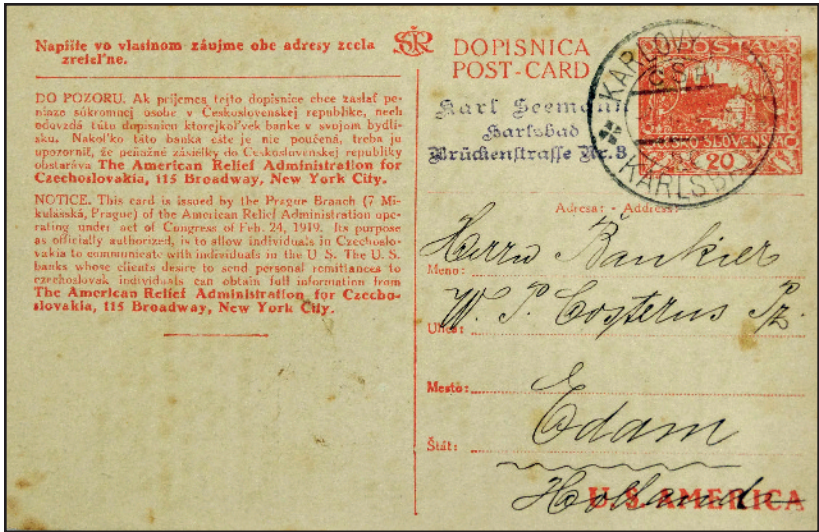 Napíšte vo vlastnom záujme obe adresy zcela
zreteľne.
DO POZORU. Ak prijemca tejto dopisnice chce zaslať pe-
niaze súkromnej osobe v Československej republike, nech
odovzdá túto dopisnicu ktorejkoľvek banke v svojom bydli-
sku. Nakoľko táto banka ešte je nie poučená, treba ju
upozorniť, že peňažné zásielky do Československej republiky
obstaráva The American Relief Administration for
Czechoslovakia, 115 Broadway, New York City.
NOTICE. This card is issued by the Prague Branch (7 Mi-
kulášská, Prague) of the American Relief Administration ope-
rating under act of Congress of Feb. 24, 1919. Its purpose
as officially authorized, is to allow individuals in Czechoslo-
vakia to communicate with individuals in the U S. The U. S.
banks whose clients desire to send personal remittances to
czechoslovak individuals can obtain full information from
The American Relief Administration for Czecho-
slovakia, 115 Broadway, New York City.
SŘ
DOPISNICA
POST-CARD
Karl Seemann
Karlsbad
Brückenstrasse Nr. 3
POŠTA
ČESKO-SLOVENSKÁ
20
KARLOVY
ČSP
KARLSBAD
Adresat - Address:
Herrn Bankier
Meno:
W. P. Costerus Pz.
Ulica:
Mesto:
Edam
Štát:
Holland
U. S. AMERICA